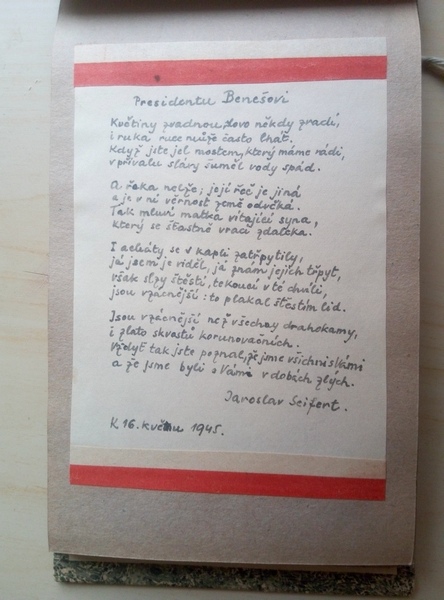 Presidentu Benešovi
Květiny zvadnou, slovo někdy zradí,
i ruka ruce může často lhát.
Když jste jel mostem, který máme rádi,
v přívalu slávy šuměl vody spád.
A řeka nelže; její řeč je jiná
a je v ní věrnost země odvěká.
Tak mluví matka vítající syna,
který se šťastně vrací zdaleka.
I acháty se v kapli zatřpytily,
já jsem je viděl, já znám jejich třpyt,
však slzy štěstí, tekoucí v té chvíli,
jsou vzácnější: to plakal štěstím lid.
Jsou vzácnější než všechny drahokamy,
i zlato skvostů korunovačních.
Vždyť tak jste poznal, že jsme všichni s Vámi
a že jsme byli s Vámi v dobách zlých.
Jaroslav Seifert.
K 16. květnu 1945.